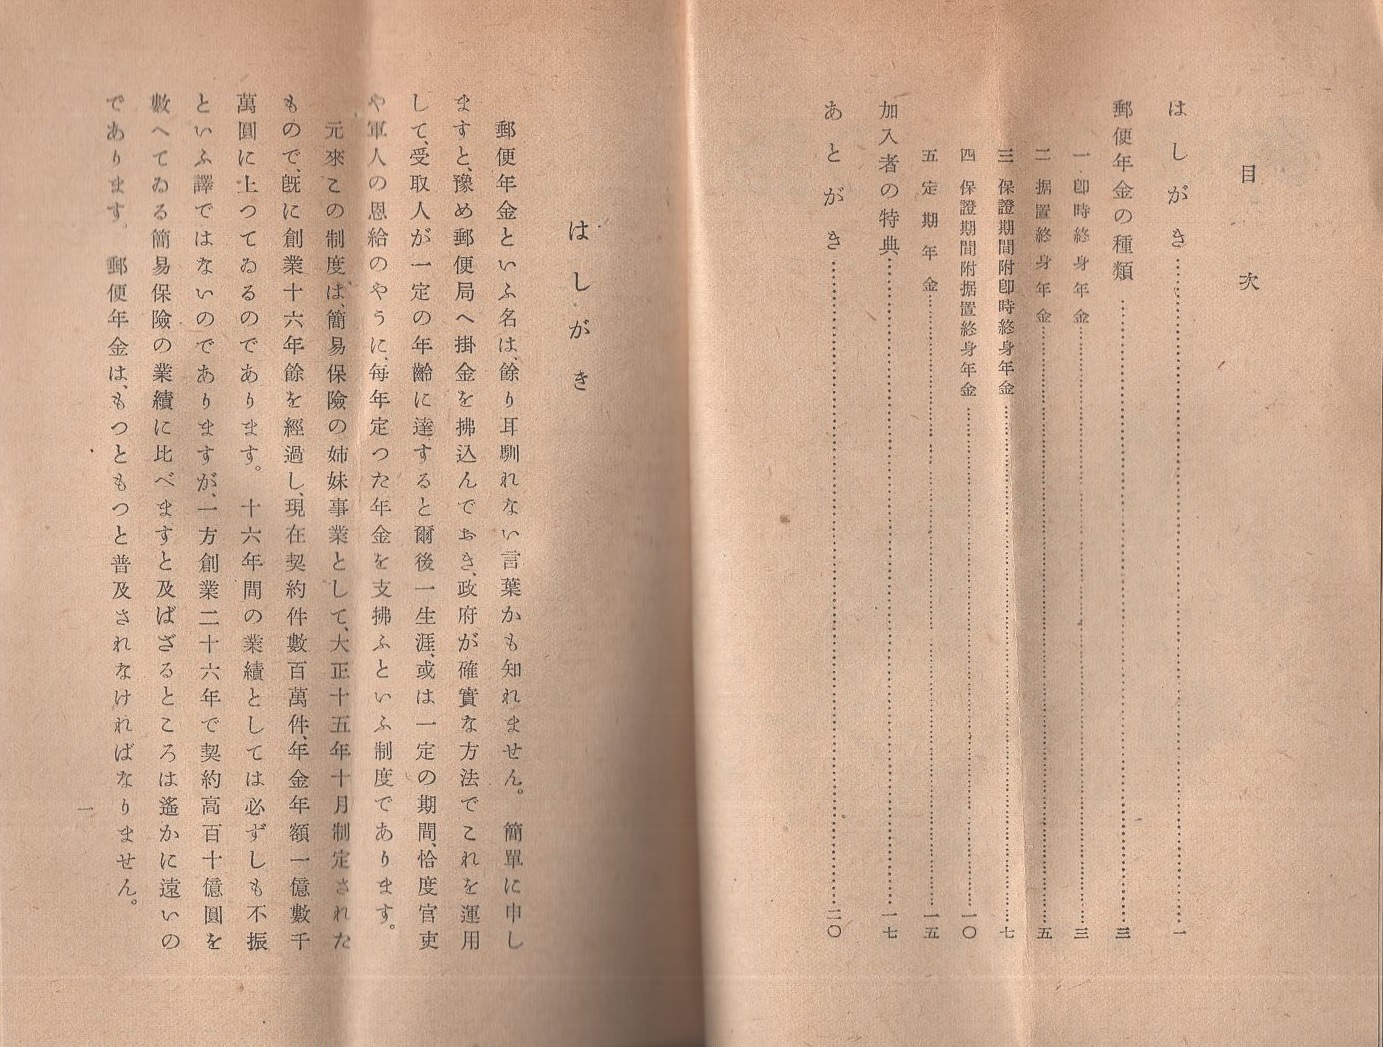 目次
はしがき…………一
郵便年金の種類…………三
一 卽時終身年金…………三
二 据置終身年金…………五
三 保證期間附卽時終身年金…………七
四 保證期間附据置終身年金…………一〇
五 定期年金…………一五
加入者の特典…………一七
あとがき…………二〇
はしがき
郵便年金といふ名は、餘り耳馴れない言葉かも知れません。簡單に申し
ますと、豫め郵便局へ掛金を拂込んでおき、政府が確實な方法でこれを運用
して、受取人が一定の年齡に達すると爾後一生涯、或は一定の期間、恰度官吏
や軍人の恩給のやうに、每年定つた年金を支拂ふといふ制度であります。
元來この制度は、簡易保險の姉妹事業として、大正十五年十月制定された
もので、旣に創業十六年餘を經過し、現在契約件數百萬件、年金年額一億數千
萬圓に上つてゐるのであります。十六年間の業績としては必ずしも不振
といふ譯ではないのでありますが、一方創業二十六年で契約高百十億圓を
數へてゐる簡易保險の業績に比べますと及ばざるところは遙かに遠いの
であります。郵便年金は、もつともつと普及されなければなりません。
一